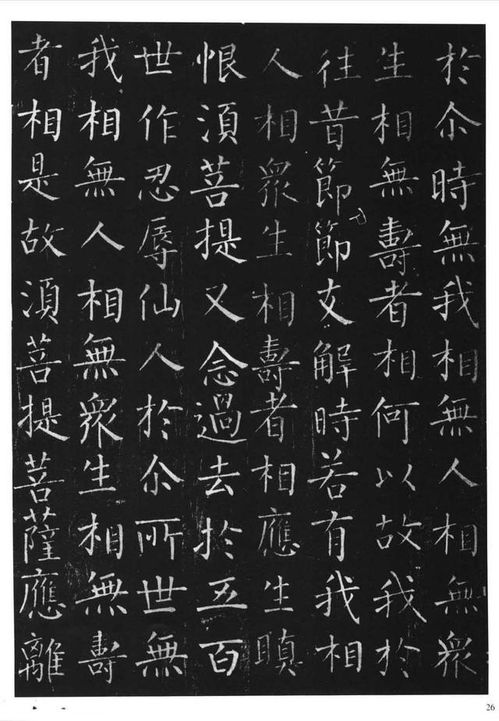 於尒時無我相無人相無衆
生相無壽者相何以故我於
往昔節節支解時若有我相
人相衆生相壽者相應生瞋
恨須菩提又念過去於五百
世作忍辱仙人於尒所世無
我相無人相無衆生相無壽
者相是故須菩提菩薩應離
26